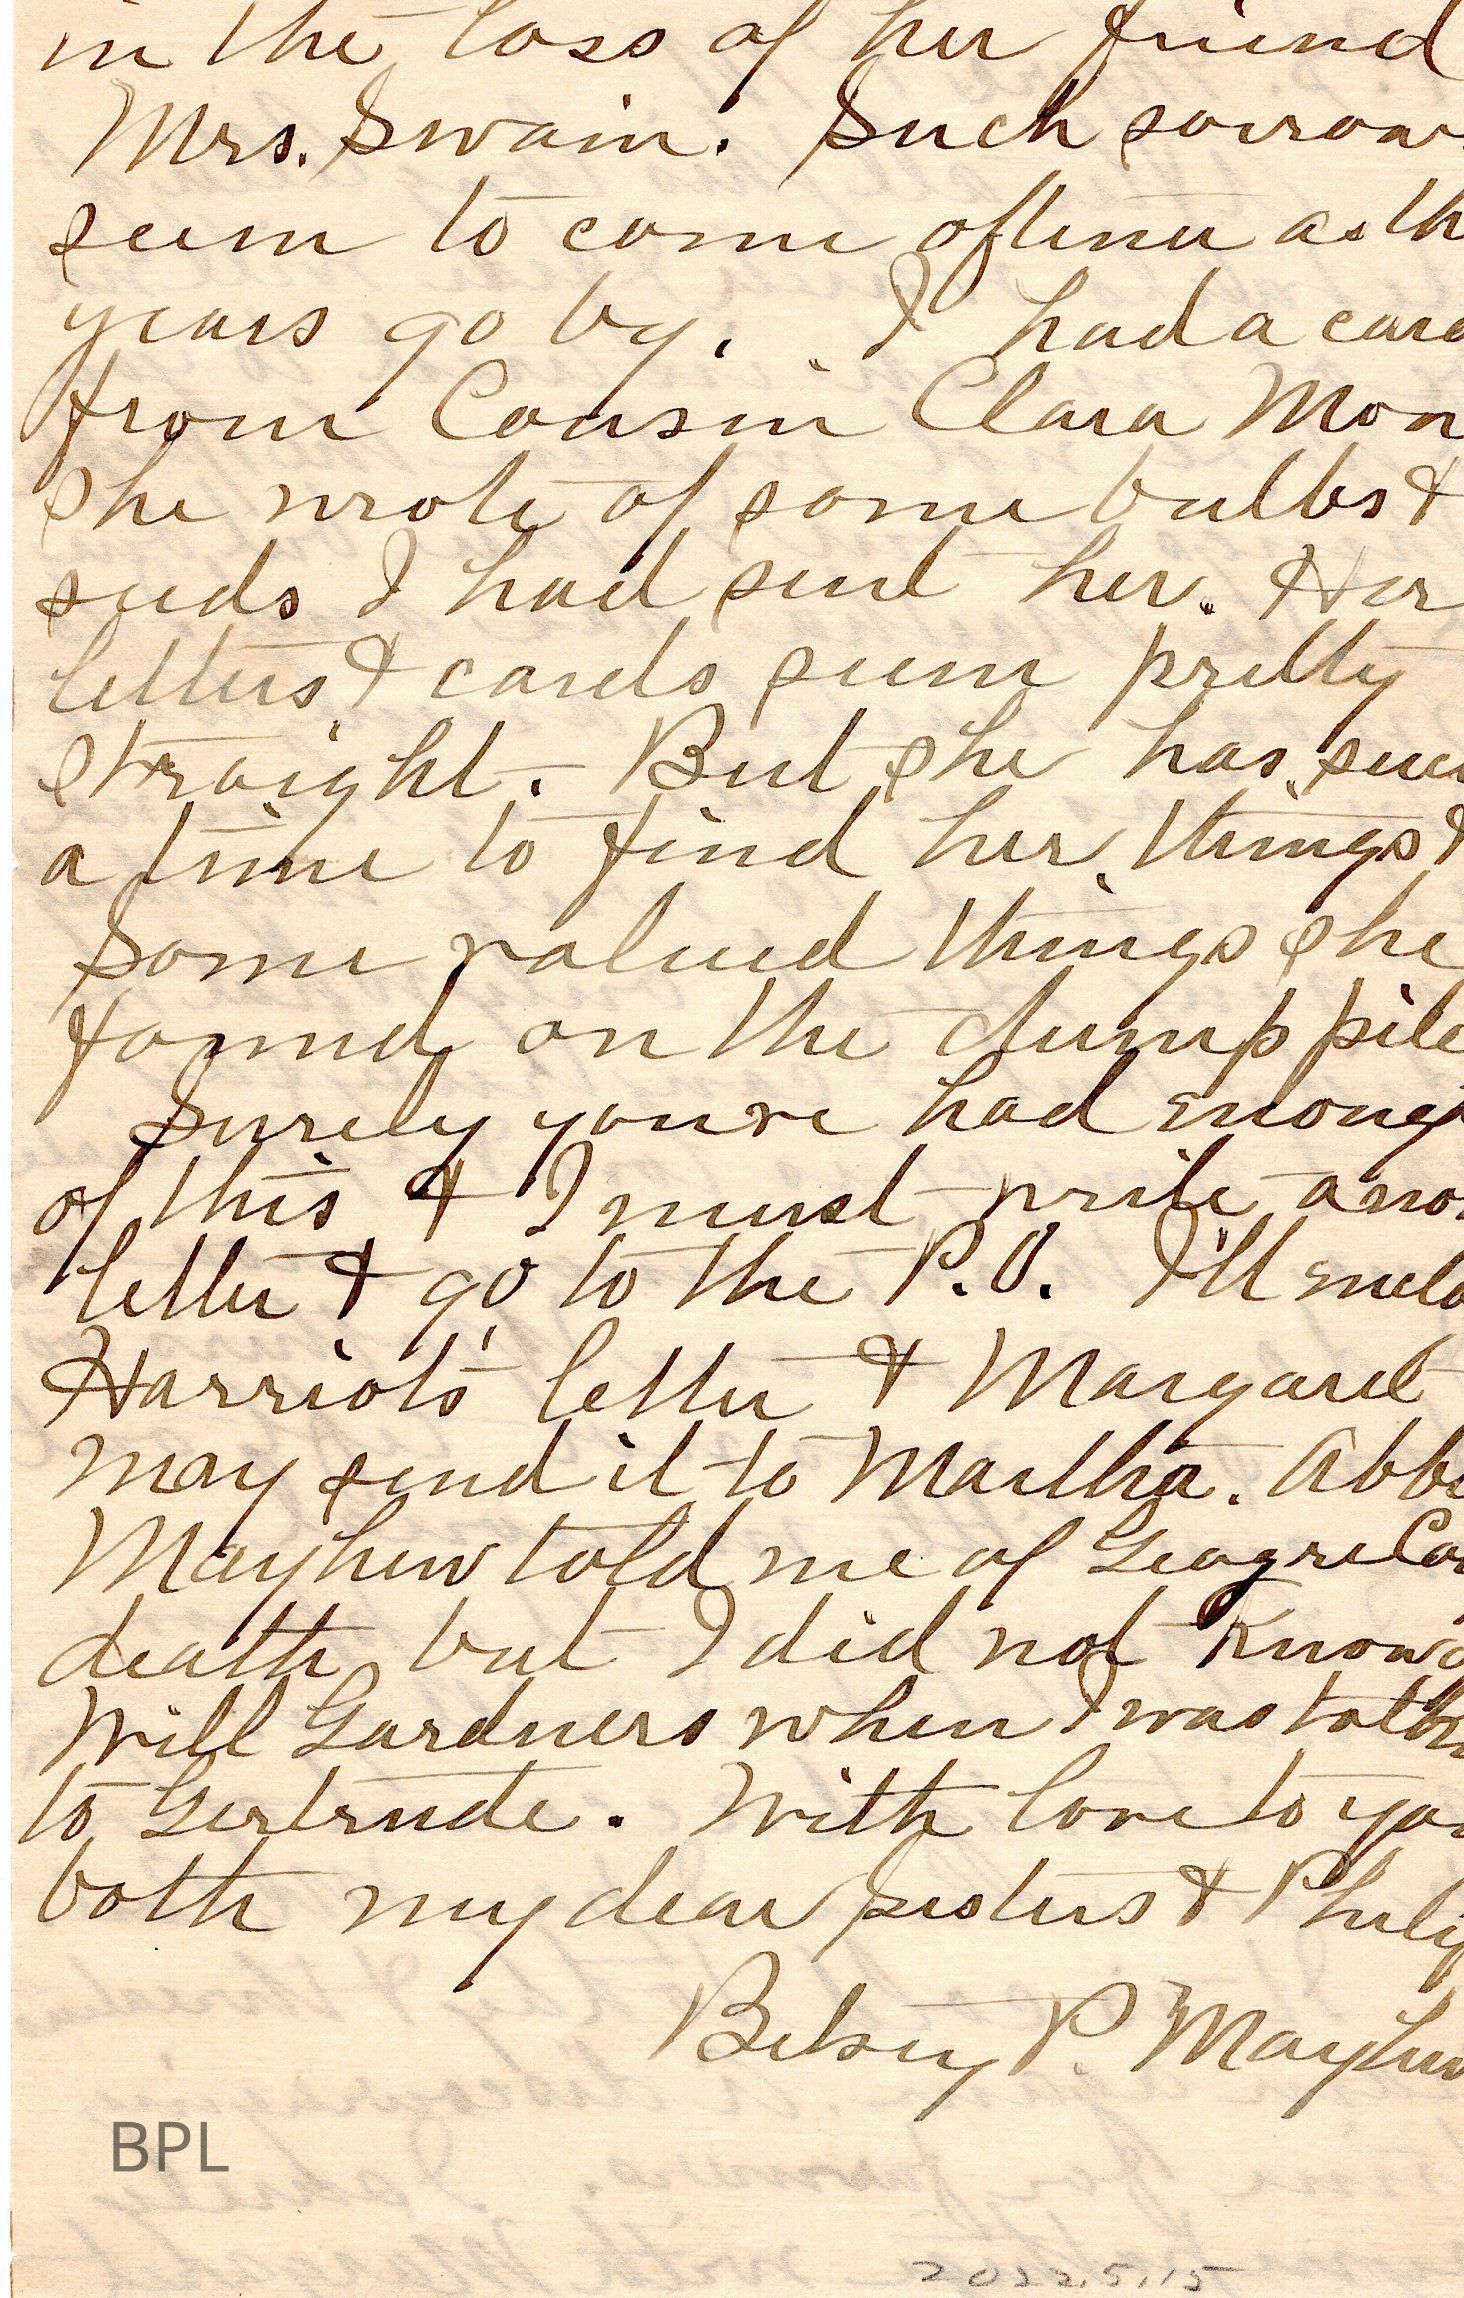 in the loss of her friend
Mrs. Swain. Such sorrow
seem to come oftener as th
years go by. I had a card
from Cousin Clara Mon
she wrote of some bulbs &
seeds I had sent her. Her
letters & cards seem pretty
straight. But she has such
a time to find her things &
some valued things she
found on the dump pile
Surely you've had enough
of this & I must write ano
letter & go to the P.O. I'll enclo
Harriot's letter & Margaret
may send it to Martha. Abbi
Mayhew told me of Geogre Co
death but I did not know o
Will Gardners when I was talkin
to Gertrude. With love to you
both my dear sisters & Philip
Betsey P. Mayhew
BPL
2022.5.15